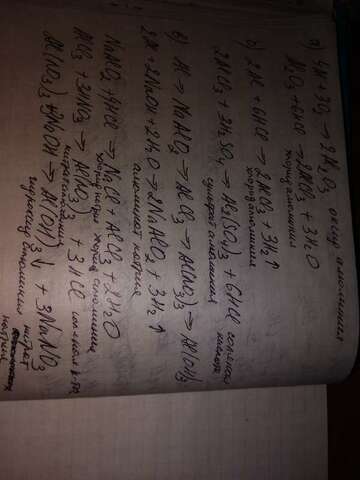 а) 4Al + 3O₂ → 2Al₂O₃ оксид алюминия
Al₂O₃ + 6HCl → 2AlCl₃ + 3H₂O
хлорид алюминия
б) 2Al + 6HCl → 2AlCl₃ + 3H₂↑
хлорид алюминия
2AlCl₃ + 3H₂SO₄ → Al₂(SO₄)₃ + 6HCl соляная
сульфат алюминия кислота
в) Al → NaAlO₂ → AlCl₃ → Al(NO₃)₃ → Al(OH)₃
2Al + 2NaOH + 2H₂O → 2NaAlO₂ + 3H₂↑
алюминат натрия
NaAlO₂ + 4HCl → NaCl + AlCl₃ + 2H₂O
хлорид натрия хлорид алюминия
AlCl₃ + 3HNO₃ → Al(NO₃)₃ + 3HCl
нитрат алюминия
Al(NO₃)₃ + 3NaOH → Al(OH)₃↓ + 3NaNO₃
гидроксид алюминия нитрат
натрия